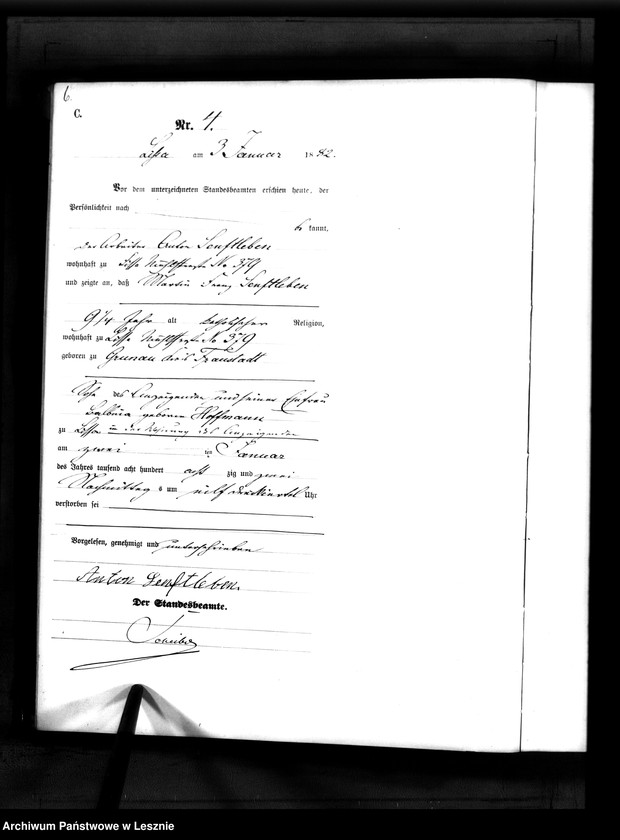 6.
C.
Nr. 4.
Lissa am 3 Januar 1882.
Vor dem unterzeichneten Standesbeamten erschien heute, der
Persönlichkeit nach
be kannt,
der Arbeiter Anton Senftleben
wohnhaft zu Lissa No 379
und zeigte an, daß Martin Franz Senftleben
9 1/4 Jahr alt katholischer Religion,
wohnhaft zu Lissa No 379
geboren zu Grunau Kreis Fraustadt
Sohn des Anzeigenden und seiner Ehefrau
geborene Hoffmann
zu Lissa in der Wohnung des Anzeigenden
am zwei ten Januar
des Jahres tausend acht hundert acht zig und zwei
Nachmittag s um elf dreiviertel Uhr
verstorben sei
Vorgelesen, genehmigt und unterschrieben
Anton Senftleben.
Der Standesbeamte.
Archiwum Państwowe w Lesznie